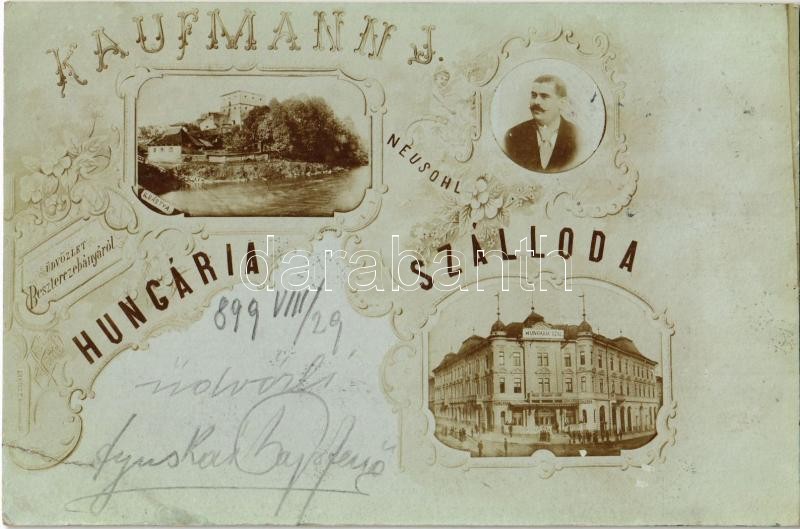 KAUFMANN J.
A BÁSTYA
NEUSOHL
ÜDVÖZLET
Beszterczebányáról
HUNGÁRIA SZÁLLODA
darabanth
HUNGÁRIA SZÁL
899 VIII/29
üdvözli